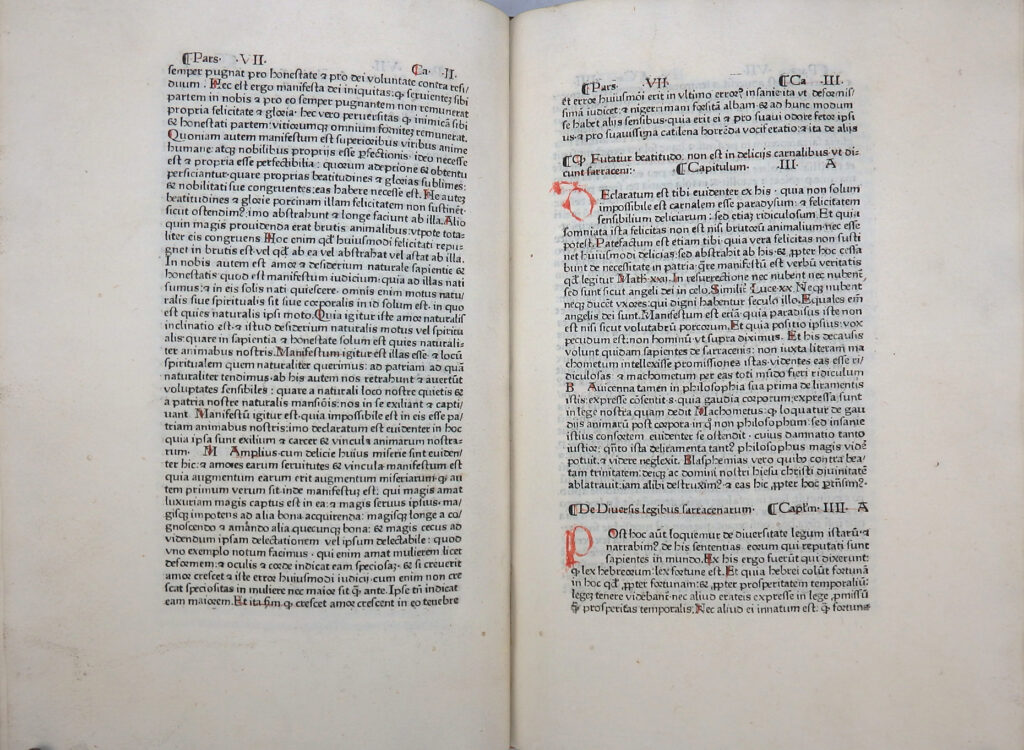 ¶Pars· ·VII· ¶Ca· ·II·
semper pugnat pro honestate ⁊ pro dei voluntate contra resi/
duum· Hec est ergo manifesta dei iniquitas: ꝙ seruientẽ sibi
partem in nobis ⁊ pro eo semper pugnantem non remunerat
propria felicitate ⁊ gloria: hec vero peruersitas ꝙ inimicã sibi
⁊ honestati partem: viticrumꝗ omnium fornitẽ remunerat.
Quoniam autem manifestum est superioribus viribus anime
humane: atꝗ nobilibus proprijs esse ꝑfectionis· ideo necesse
est ⁊ propria esse perfectibilia: quorum adeptione ⁊ obtentu
perficiantur· quare proprias beatitudines ⁊ glorias sublimes:
⁊ nobilitati sue congruentes: eas habere necesse est. He autẽ
beatitudines ⁊ glorie porcinam illam felicitatem non sustinẽt·
sicut ostendim⁹: imo abstrahunt ⁊ longe faciunt ab illa. Alio
quin magis prouidenda erat brutis animalibus: vtpote tota-
liter eis congruens Hoc enim qđ huiusmodi felicitati repu-
gnet in brutis est· vel qđ ab ea vel abstrahat vel astat ab illa.
In nobis autem est amor ⁊ desiderium naturale sapientie ⁊
honestatis· quod est manifestum iudicium· quia ad illas nati
sumus: ⁊ in eis solis nati quiescere· omnis enim motus natu/
ralis siue spiritualis sit siue corporalis in id solum est· in quo
est quies naturalis ipsi moto. Quia igitur iste amor naturalis
inclinatio est· ⁊ istud desiderium naturalis motus vel spiritu
alis: quare in sapientia ⁊ honestate solum est quies naturali-
ter animabus nostris. Manifestum igitur est illas esse ⁊ locũ
spiritualem quem naturaliter querimus: ad patriam ad quã
naturaliter tendimus· ab his autem nos retrahunt ⁊ auertũt
voluptates sensibiles: quare a naturali loco nostre quietis ⁊
a patria nostre naturalis mansiõis: nos in se exiliant ⁊ capti/
uant· Manifestũ igitur est· quia impossibile est in eis esse pa/
triam animabus nostris: imo declaratum est euidenter in hoc
quia ipsa sunt exilium ⁊ carcer ⁊ vincula animarum nostra-
rum· M Amplius· cum delicie huius miserie sint euiden/
ter hic: ⁊ amores earum seruitutes ⁊ vincula· manifestum est
quia augmentum earum erit augmentum miseriarum: ꝙ au
tem primum verum sit inde manifestuȝ est: qui magis amat
luxuriam magis captus est in ea: ⁊ magis seruus ipsius· ma/
gisꝗ impotens ad alia bona acquirenda: magisꝗ longe a co/
gnoscendo ⁊ amãndo alia quecunꝗ bona: ⁊ magis cecus ad
videndum ipsam delectationem vel ipsum delectabile: quod
vno exemplo notum facimus· qui enim amat mulierem licet
deformem: ⁊ oculis ⁊ corde indicat eam speciosaȝ: ⁊ si creuerit
amor crescet ⁊ iste error huiusmodi iudicij cum enim non cre
scat speciositas in muliere nec maior sit ꝙ̃ ante· Ipse tñ indicat
eam maiorem. Et ita fim ꝙ crescet amor crescent in eo tenebre
¶Pars· ·VII· ¶Ca ·III·
et error huiusmõi erit in vltimo error⁹ insanie· ita vt deformis/
simã iudicet· ⁊ nigerrimam forsitã albam· ⁊ ad hunc modum
se habet alijs sensibus· quia erit ei ⁊ pro suaui odore fetor ipsi
us· ⁊ pro suauissima catilena horrẽda vociferatio: ⁊ ita de alijs
¶Ꝙ Futatur beatitudo· non est in delicijs carnalibus· vt di-
cunt sarraceni:· ¶Capitulum· ·III· A
DEclaratum est tibi euidenter ex his· quia non solum
impossibile est carnalem esse paradysum: ⁊ felicitatem
sensibilium deliciarum: sed etiaȝ ridiculosum. Et quia
somniata ista felicitas non est nisi brutorũ animalium· nec esse
potest. Patefactum est etiam tibi· quia vera felicitas non susti
net huiusmodi delicias: sed abstrahit ab his: ⁊ ꝓpter hoc cessa
bunt de necessitate in patria: q̃re manifestũ est verbũ veritatis
qđ legitur Math· xxij. In resurrectione nec nubent nec nubent̃,
sed sunt sicut angeli dei in celo. Similit̃ Luce· xx. Neꝗ nubent
neꝗ ducẽt vxores: qui digni habentur seculo illo. Equales eĩm
angelis dei sunt. Manifestum est etiã: quia paradisus iste non
est nisi sicut volutabrũ porcorum. Et quia positio ipsius: vox
pecudum est: non hominũ vt supra diximus. Et his decausis
volunt quidam sapientes de sarracenis: non iuxta literam ma
chometum intellexisse promissiones istas· videntes eas esse ri/
diculosas· ⁊ machometum per eas toti mũdo fieri ridiculum
B Auicenna tamen in philosophia sua prima deliramentis
istis· expresse cõsentit· s· quia gaudia corporum: expressa sunt
in lege nostra quam dedit Machometus: ꝙ loquatur de gau
dijs animarũ post corpora in ꝗ̃ non philosophum: sed insanie
istius consortem euidenter se ostendit· cuius damnatio tanto
iustior: ꝗ̃nto ista deliramenta tant⁹ philosophus magis videre
potuit· ⁊ videre neglexit. Blasphemias vero quibo contra bea/
tam trinitatem: deicꝗ ac domini nostri hiesu christi diuinitatẽ
ablatrauit: iam alibi destruxim⁹· ⁊ eas hic ꝓpter hoc p̃trĩsim⁹·
¶De Diuersis legibus sarracenarum· ¶Captľm· IIII· A
POst hoc aũt loquemur de diuersitate legum istarũ· ⁊
narrabim⁹ de his sententias eorum qui reputati sunt
sapientes in mundo. Ex his ergo fuerũt qui dixerunt:
ꝙ lex hebreorum: lex fortune est. Et quia hebrei colũt fortunã
in hoc qđ ꝓpter fortunam: ⁊ ꝓpter prosperitatem temporaliũ:
legeȝ tenere vidẽbant̃· nec aliud erat eis expresse in lege ꝓmissũ
ꝙ̃ prosperitas temporalis. Nec aliud ei innatum est: ꝙ̃ fortune